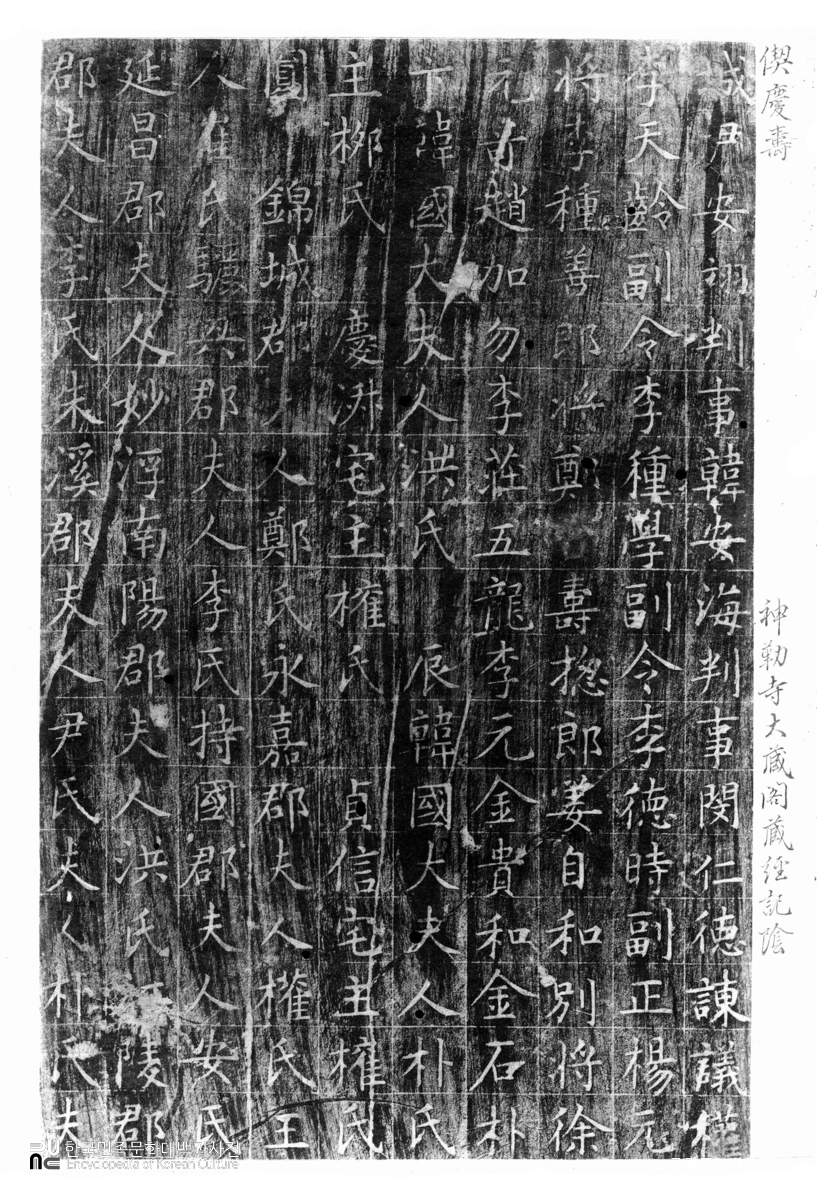 偰慶壽
神勒寺大藏閣藏經記陰
城尹安翊判事韓安海判事閔仁德諫議權
李天齡副令李種學副令李德時副正楊元
将李種善郎将鄭 壽揔郎姜自和別将徐
元奇趙加勿李莊五龍李元金貴和金石朴
卞韓國大夫人洪氏 辰韓國大夫人朴氏
主柳氏 慶 宅主權氏 貞信宅主權氏
圓 錦城郡夫人鄭氏永嘉郡夫人權氏王
人崔氏驪興郡夫人李氏持國郡夫人安氏
延昌郡夫人妙 南陽郡夫人洪氏 陵郡
郡夫人李氏朱溪郡夫人尹氏夫人朴氏夫
한국민족문화대백과사전
Encyclopedia of Korean Culture